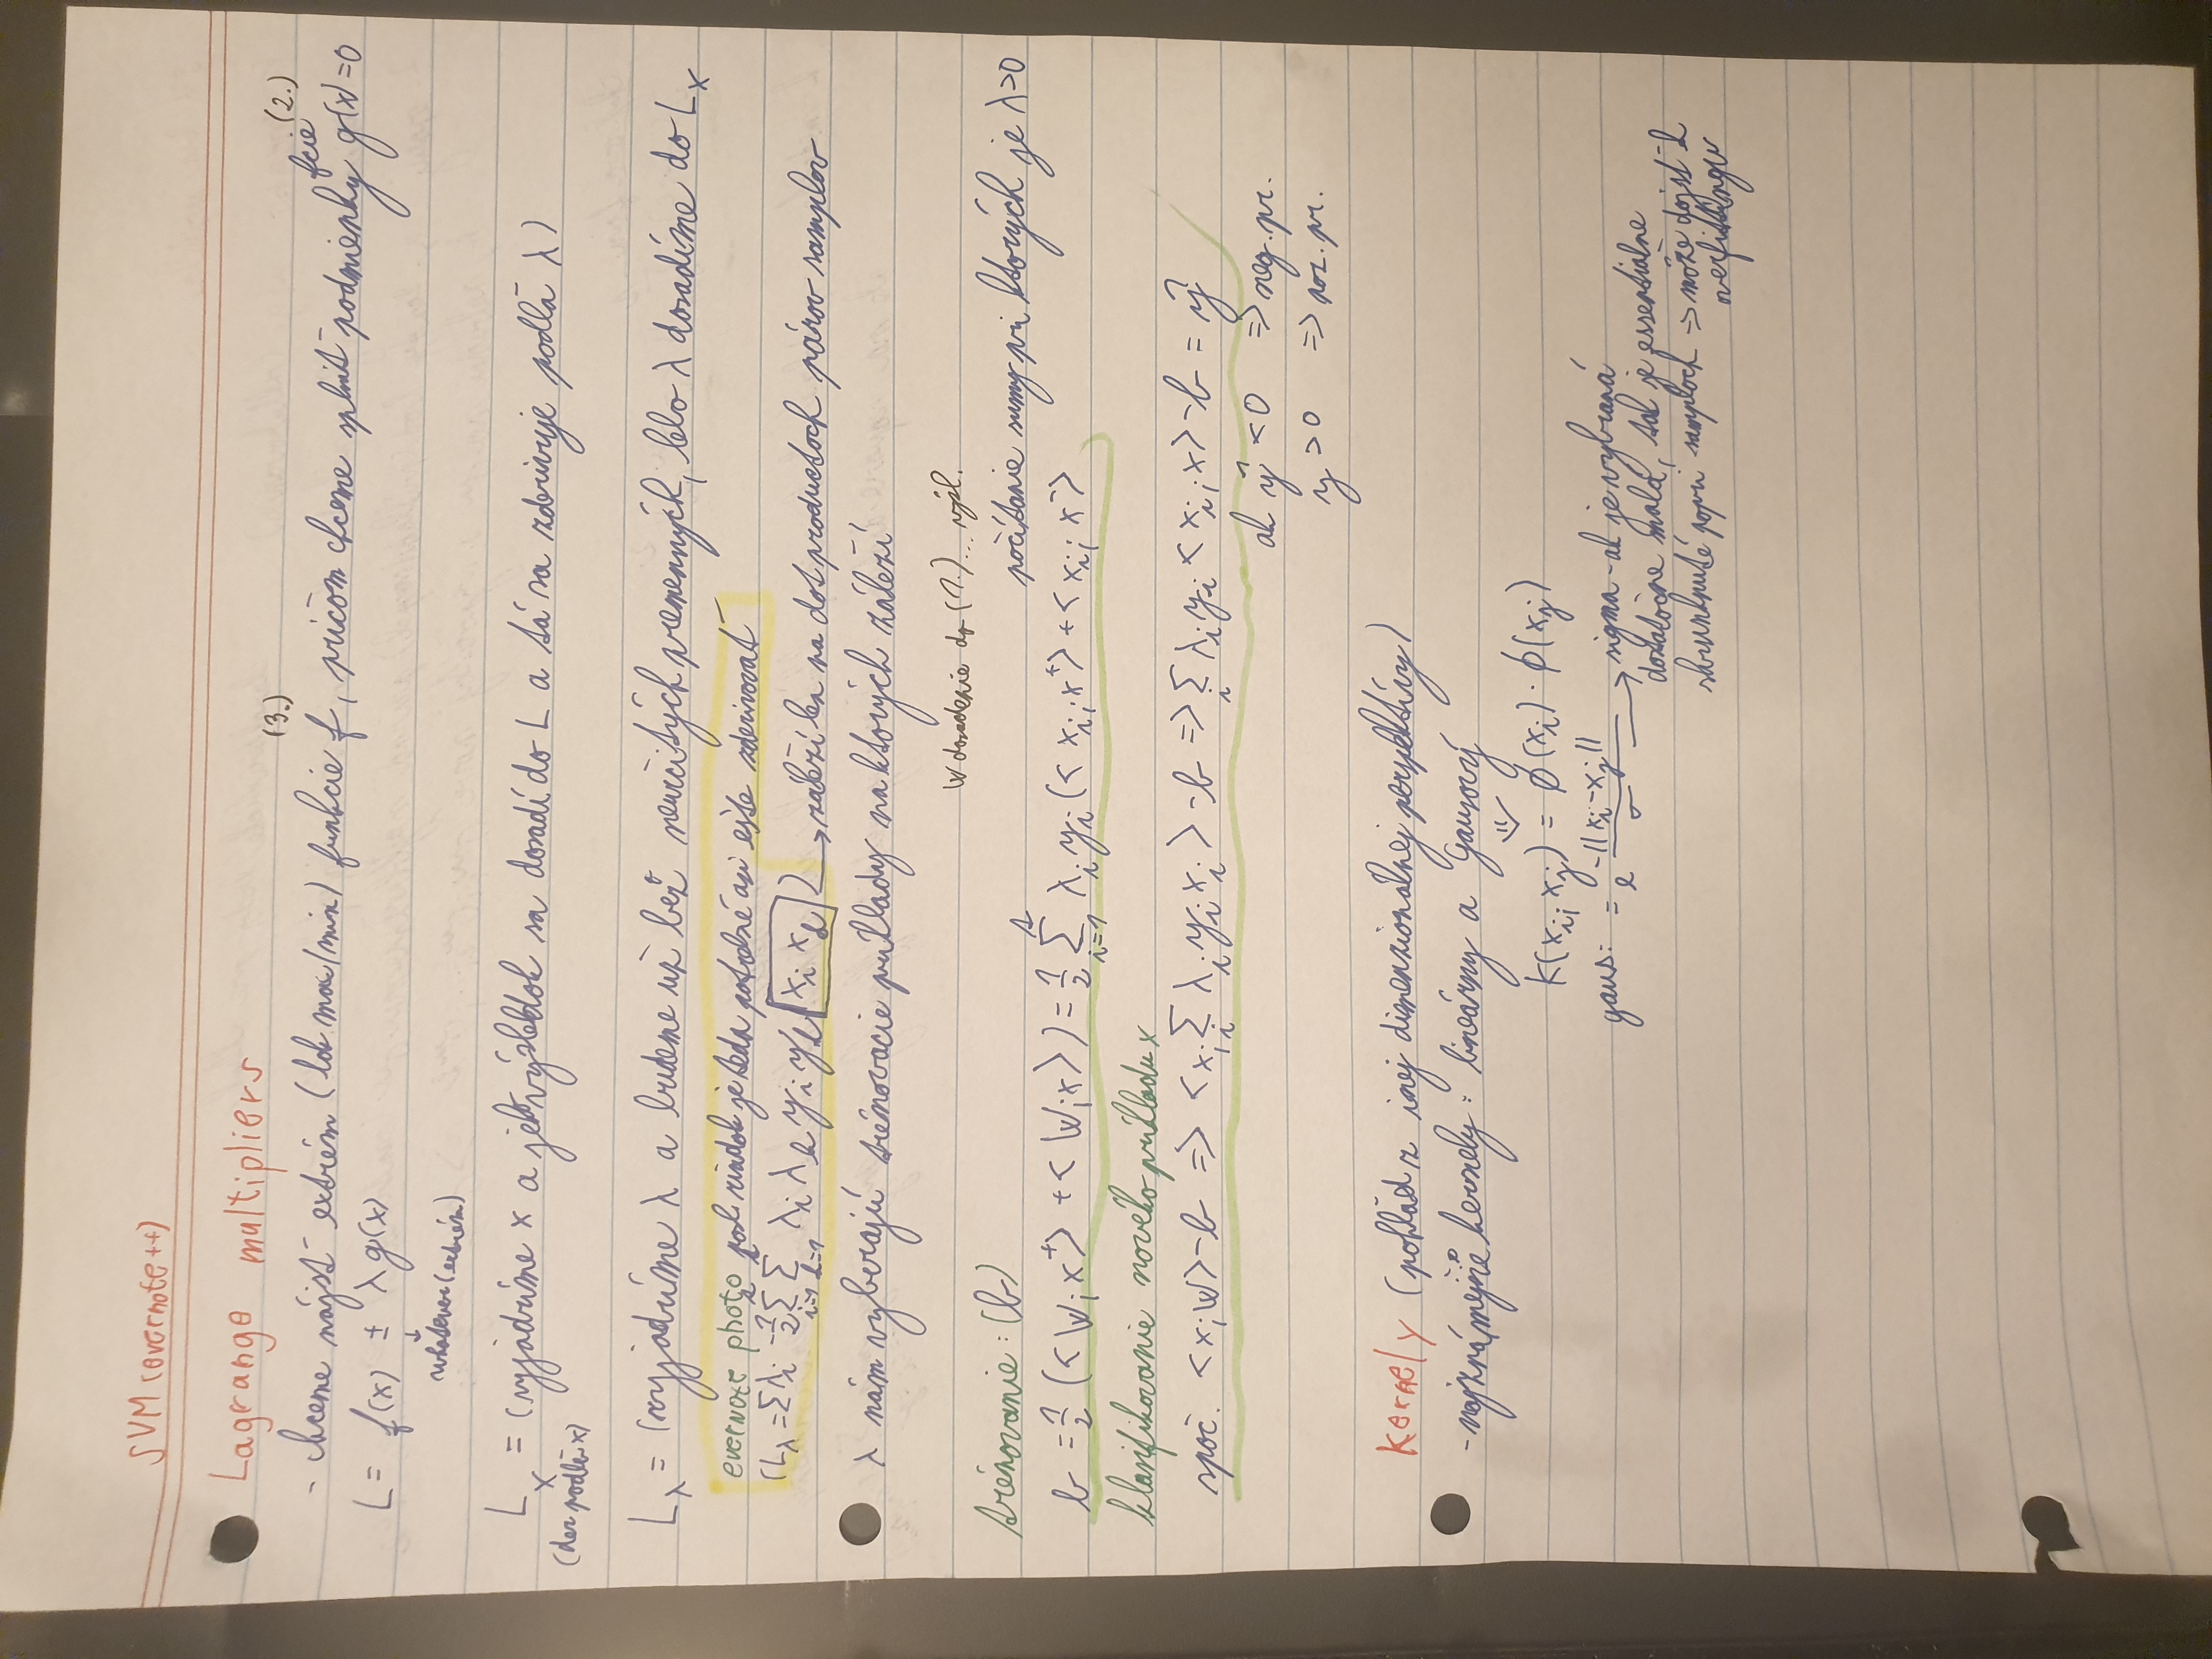 SVM (evernote++)
Lagrange multipliers
(3.) (2.)
- chceme nájsť extrém (lok. max/min) funkcie f, pričom chceme splniť podmienky fcie g(x)=0
L = f(x) ± λg(x)
↓
whatever (extrém)
L_x = (vyjadríme x a jeho výsledok sa dosadí do L a tá sa zderivuje podľa λ)
(der podľa x)
L_λ = (vyjadríme λ a budeme už bez neurčitých premenných, lebo λ dosadíme do L_x
evernote photo posl. riadok je teda potrebné asi ešte zderivovať
(L_λ = Σλ_i - 1/2 Σ_{i=1} Σ_{k=1} λ_i λ_k y_i y_k x_i x_k) → záleží len na dot productoch párov samplov
λ nám vyberajú trénovacie príklady na ktorých záleží
w dosadenie do (1.)... výsl.
trénovanie: (b) počítanie sumy pri ktorých je λ>0
b = 1/2 (<w; x⁺> + <w; x>) = 1/2 Σ_{i=1} λ_i y_i (<x_i; x⁺> + <x_i; x⁻>
klasifikovanie nového príkladu x
spoč. <x; w> - b => <x; Σ_i λ_i y_i x_i> - b => Σ_i λ_i y_i <x_i; x> - b = ŷ
ak ŷ < 0 => neg. pr.
y > 0 => poz. pr.
Kernely (pohľad z inej dimenzionálnej perspektívy)
- najznámejšie kernely: lineárny a Gausový
K(x_i; x_j) = φ(x_i) · φ(x_j)
gaus: = e^{-||x_i - x_j||/σ} → sigma - ak je vybraná
dostatočne malá, tak je essentialne
skrunknuté popri samploch => môže dojsť k
overfittingu